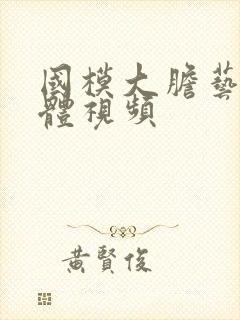 國模大膽藝
體視頻
黃賢俊